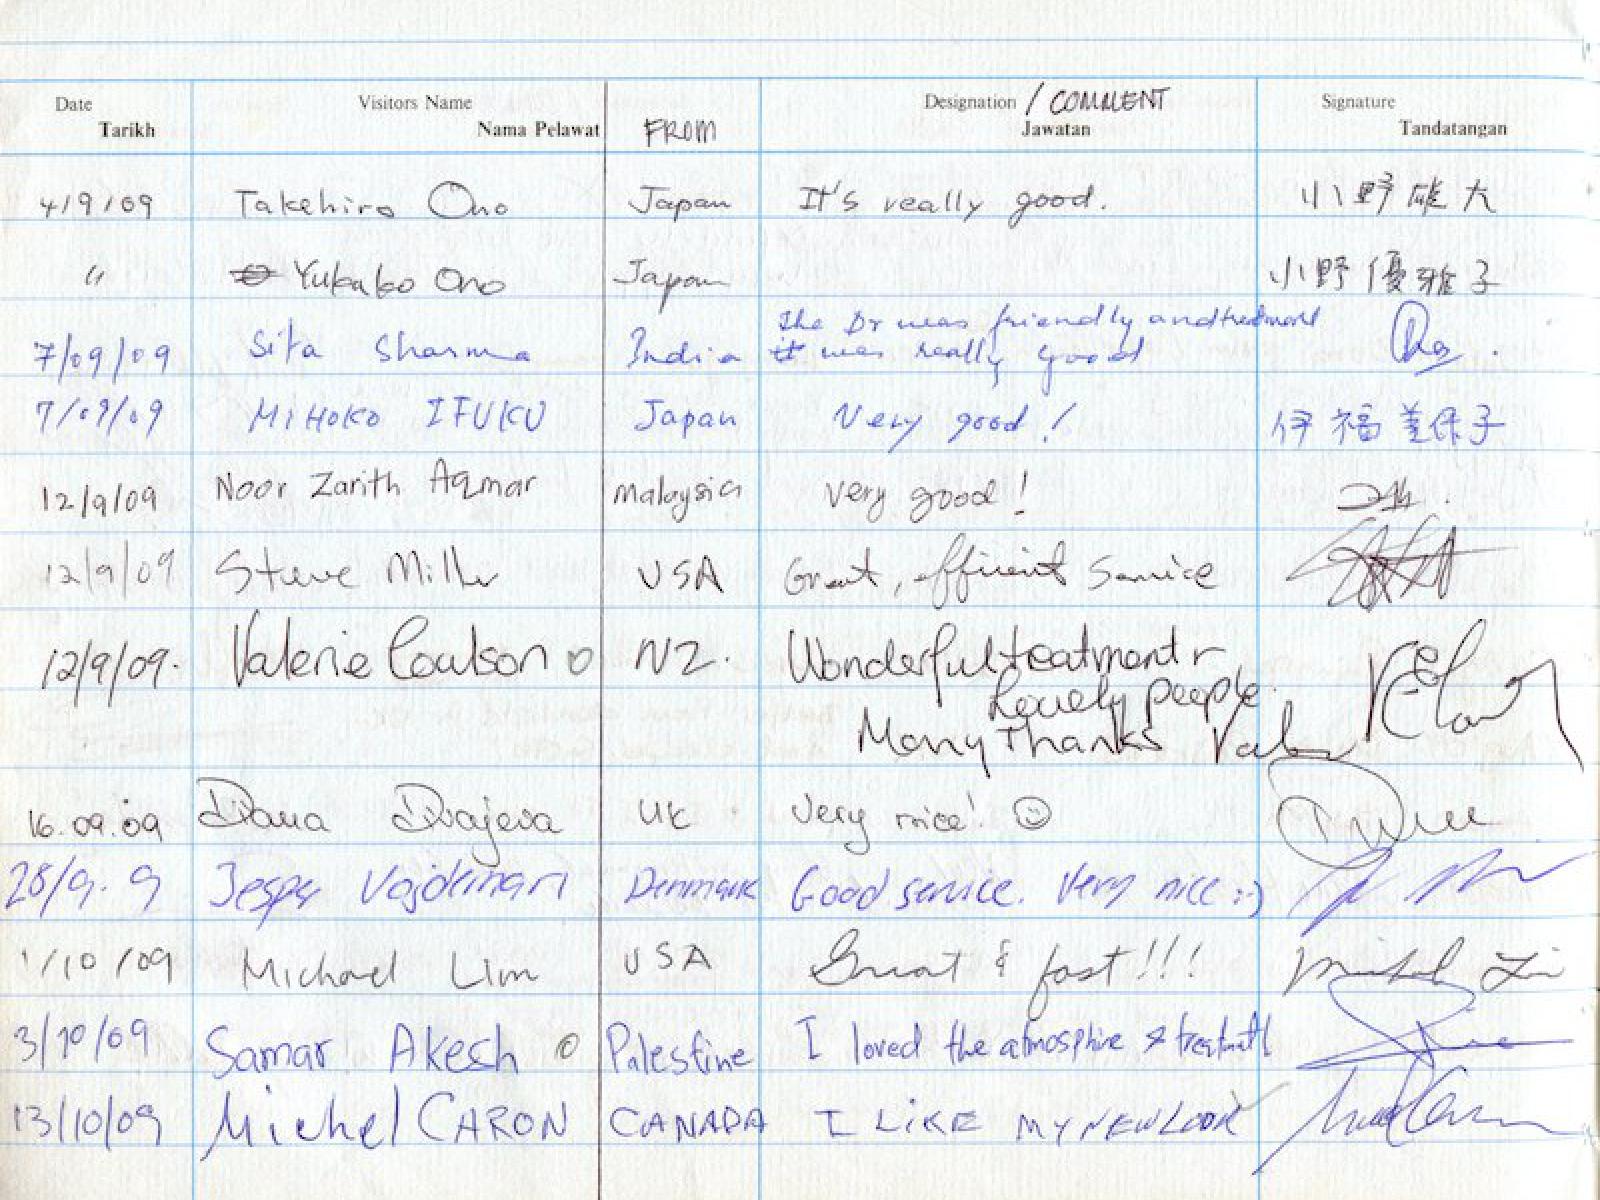 Date Visitors Name Designation / COMMENT Signature
Tarikh Nama Pelawat FROM Jawatan Tandatangan
4/9/09 Takehiro Ono Japan It's really good. 小野雄大
" Yukako Ono Japan 小野優雅子
The Dr was friendly and treatment
7/09/09 Sita Sharma India it was really good
7/09/09 MIHOKO IFUKU Japan Very good! 伊福美保子
12/9/09 Noor Zarith Aqmar Malaysia very good!
12/9/09 Steve Miller USA Great, efficient Service
12/9/09. Valerie Coulson NZ. Wonderful treatment
Lovely people.
Many Thanks
16.09.09 UK Very nice! ☺
28/9.9 Denmark Good service. Very nice :-)
1/10/09 Michael Lim USA Great & fast!!! Michael Lim
3/10/09 Samar Akesh Palestine I loved the atmosphire & treatmatt
13/10/09 Michel CARON CANADA I LIKE MY NEW LOOK